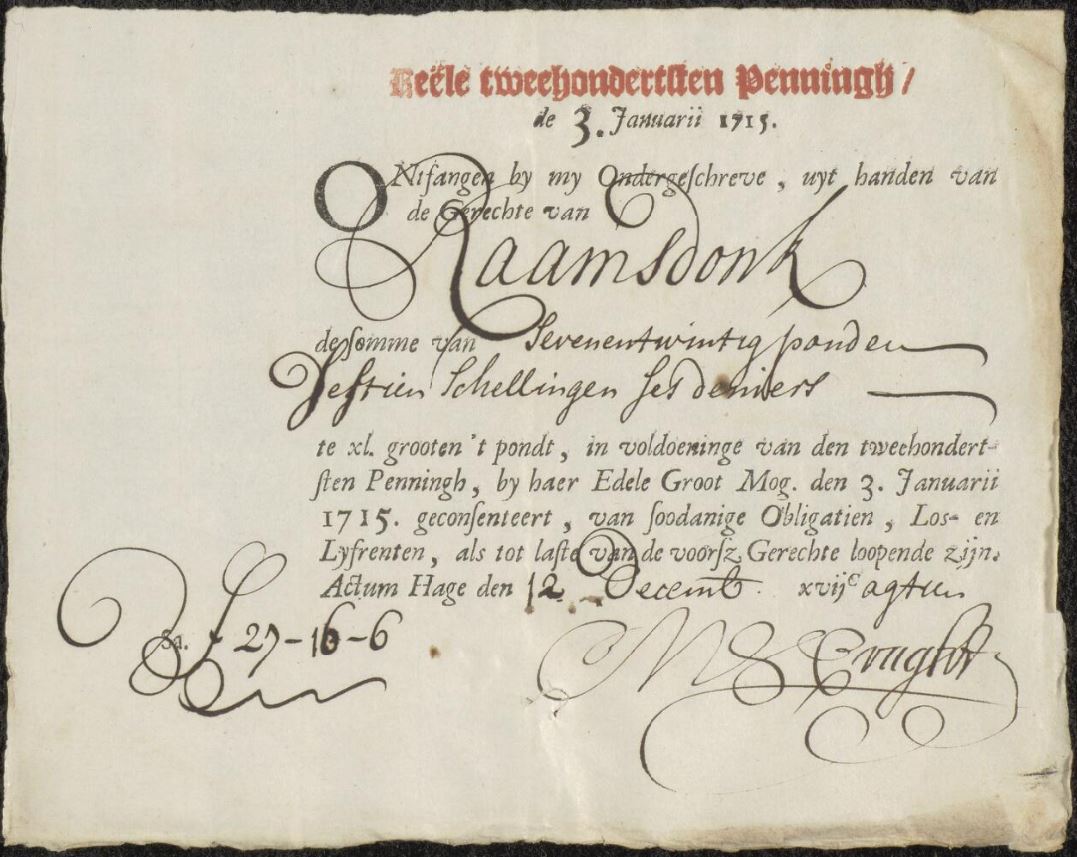 Reële tweehondertsten Penningh /
de 3. Januarii 1715.
ONtfangen by my Ondergeschreve, uyt handen van
de Gerechte van
Raamsdonk
de somme van Sevenentwintig ponden
Sestien Schellingen ses deniers
te xl. grooten 't pondt, in voldoeninge van den tweehondert-
sten Penningh, by haer Edele Groot Mog. den 3. Januarii
1715. geconsenteert, van soodanige Obligatien, Los- en
Lyfrenten, als tot laste van de voorsz Gerechte loopende zijn.
Actum Hage den 12 Decemb. xvijc agtien
Sa. f 27-16-6